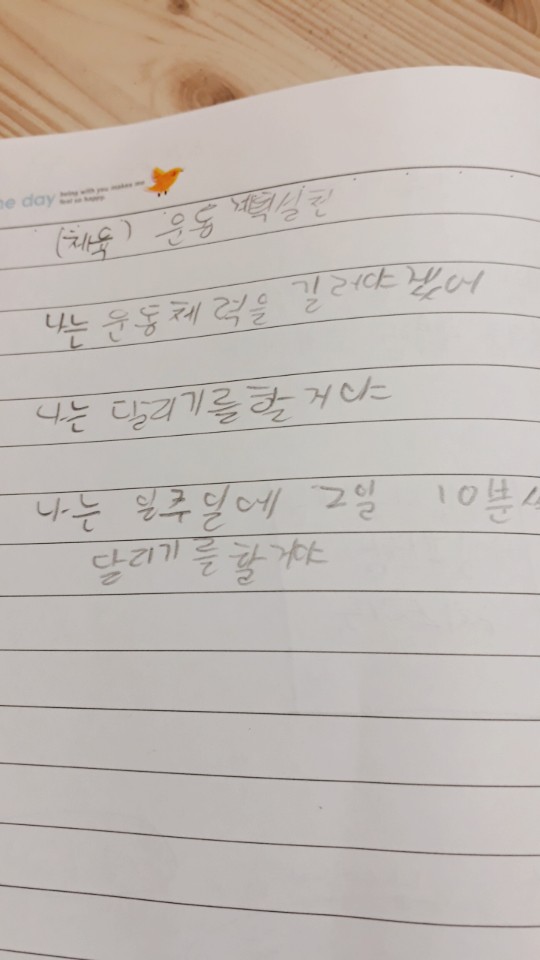 me day being with you makes me
feel so happy.
(체육) 운동 계획실천
나는 운동체력을 길러야겠어
나는 달리기를할거야
나는 일주일에 2일 10분씩
달리기를할거야